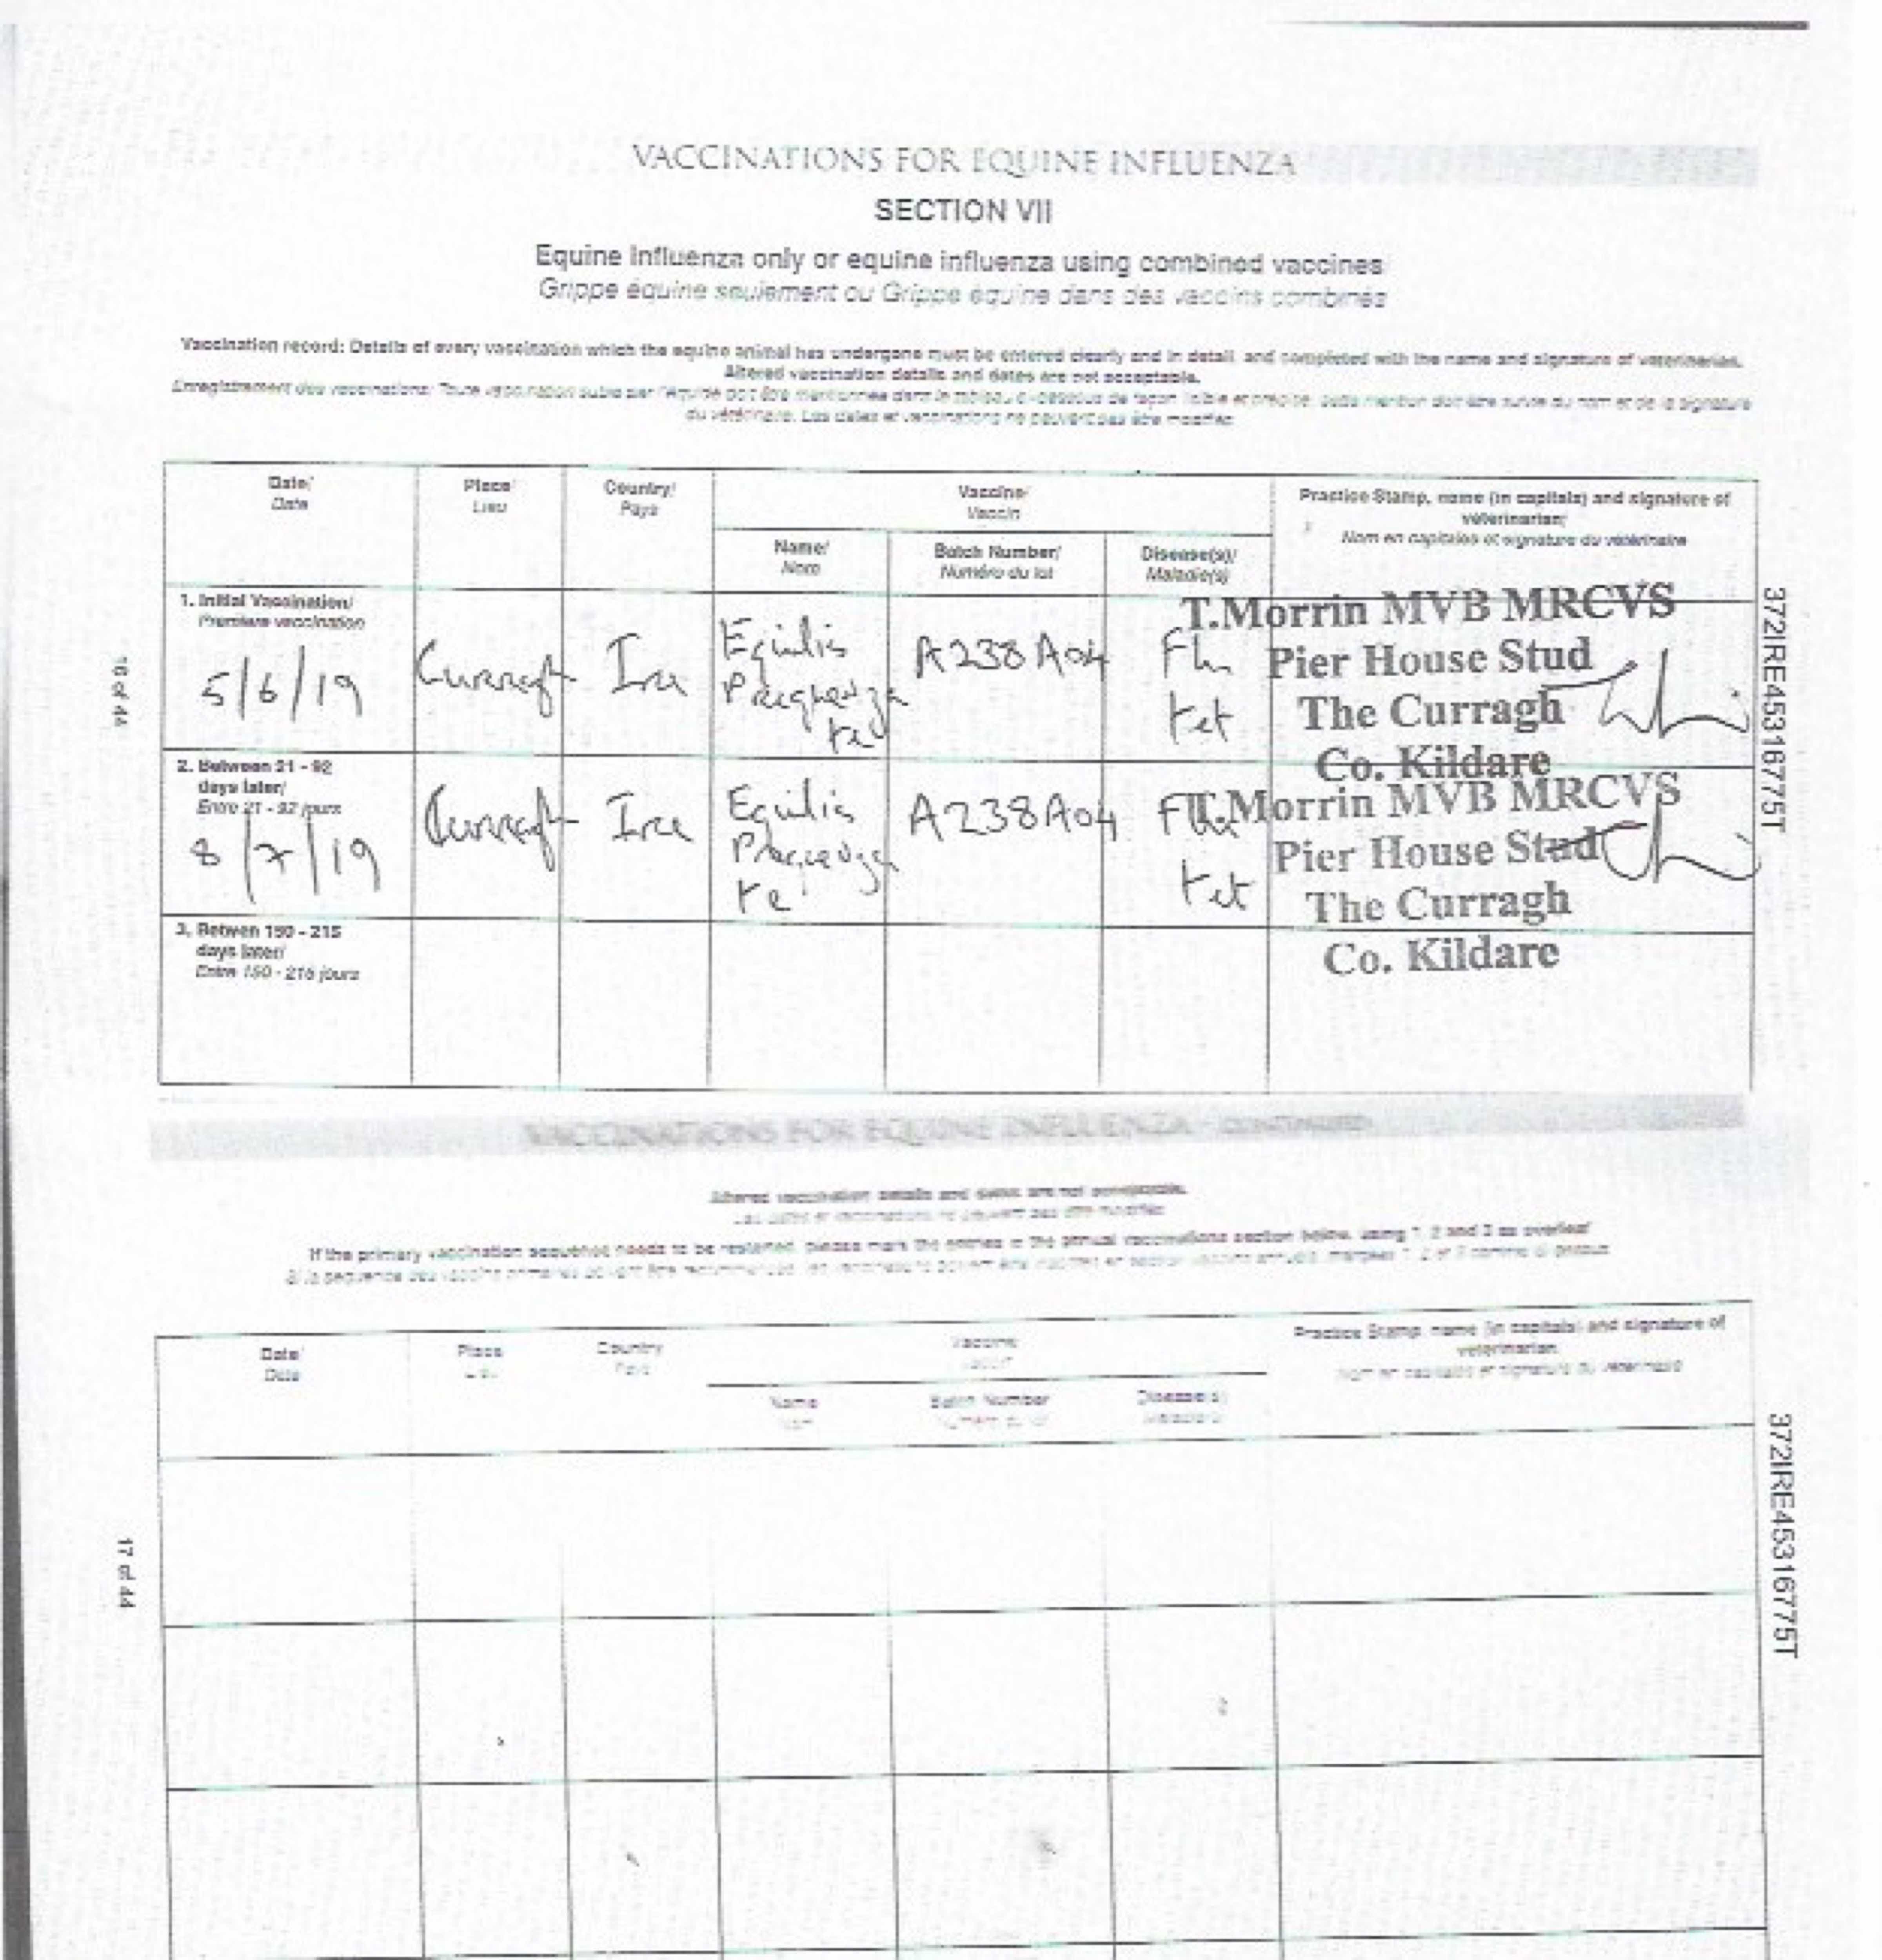 VACCINATIONS FOR EQUINE INFLUENZA
SECTION VII
Equine Influenza only or equine influenza using combined vaccines
Grippe équine seulement ou Grippe équine dans des vaccins combinés
Vaccination record: Details of every vaccination which the equine animal has undergone must be entered clearly and in detail and completed with the name and signature of veterinarian.
Altered vaccination details and dates are not acceptable.
Enregistrement des vaccinations: Toute vaccination subie par l'équidé doit être mentionnée dans le tableau ci-dessous de façon lisible et précise, cette mention doit être suivie du nom et de la signature
du vétérinaire. Les dates et vaccinations ne peuvent pas être modifiés
Date/
Date
Place/
Lieu
Country/
Pays
Vaccine/
Vaccin
Practice Stamp, name (in capitals) and signature of
veterinarian/
Nom en capitales et signature du vétérinaire
Name/
Nom
Batch Number/
Numéro du lot
Disease(s)/
Maladie(s)
1. Initial Vaccination/
Première vaccination
5/6/19
Curragh
Ire
Equilis
te
A238A04
Flu
tet
T.Morrin MVB MRCVS
Pier House Stud
The Curragh
Co. Kildare
2. Between 21 - 92
days later/
Entre 21 - 92 jours
8/7/19
Curragh
Ire
Equilis
te
A238A04
Flu
tet
T.Morrin MVB MRCVS
Pier House Stud
The Curragh
Co. Kildare
3. Betwen 150 - 215
days later/
Entre 150 - 215 jours
16 of 44
372IRE45316775T
VACCINATIONS FOR EQUINE INFLUENZA - CONTINUED
Altered vaccination details and dates are not acceptable.
Les dates et vaccinations ne peuvent pas être modifiés
If the primary vaccination sequence needs to be restarted, please mark the entries in the annual vaccinations section below, using 1, 2 and 3 as overleaf
Date/
Date
Place
Country
Pays
Vaccine
Practice Stamp name (in capitals) and signature of
veterinarian
Nom en capitales et signature du vétérinaire
Name
Batch Number
Disease(s)
17 of 44
372IRE45316775T